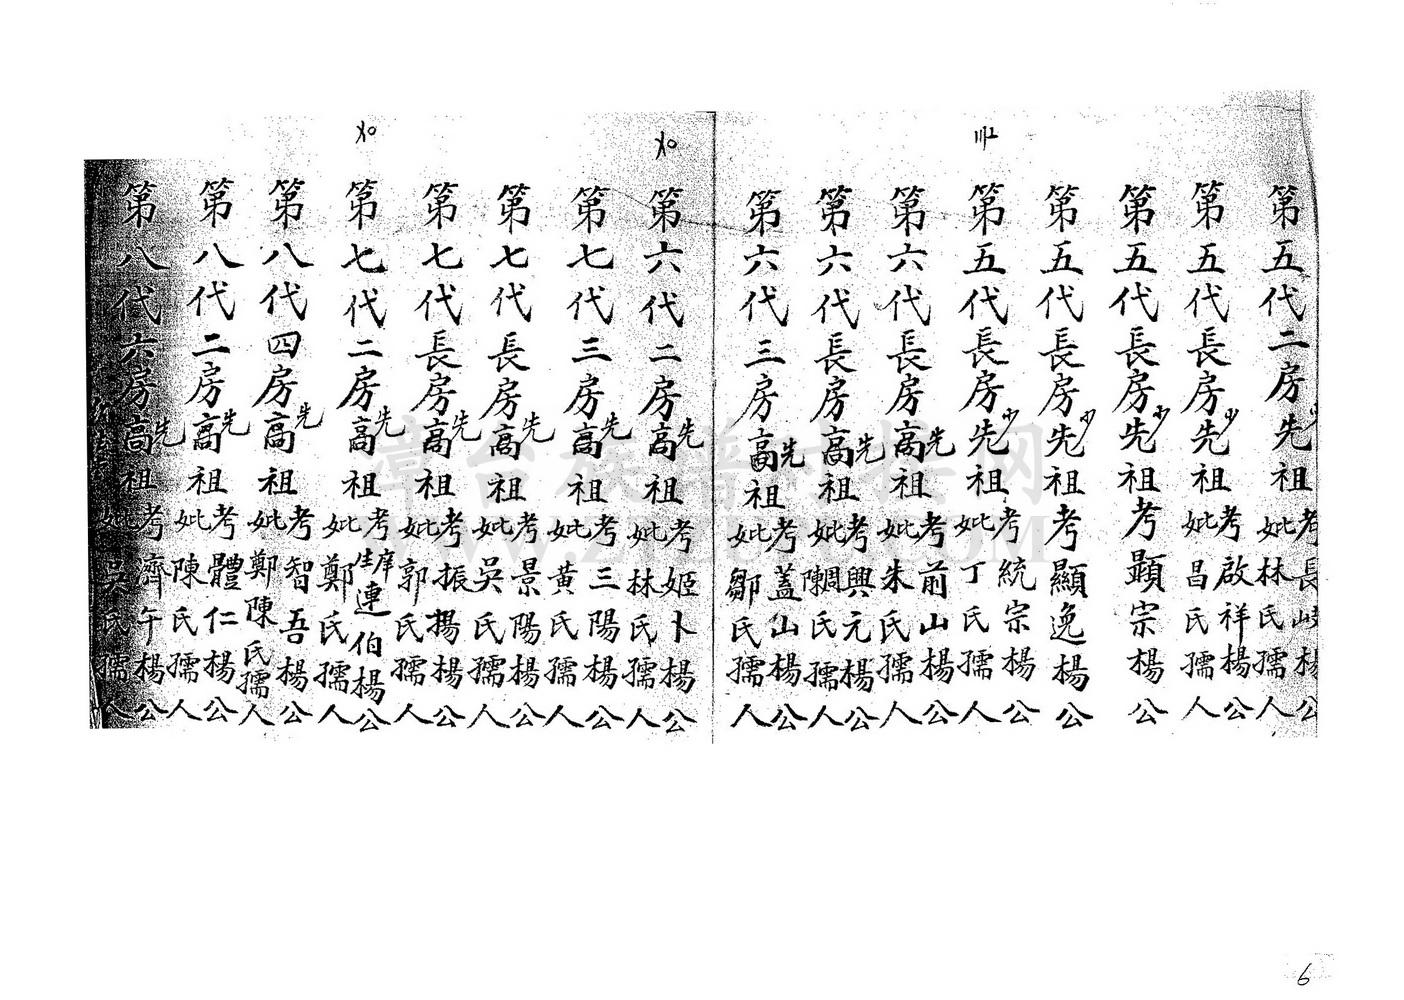 第五代二房先祖考長山楊公妣林氏孺人
第五代長房先祖考啟祥楊公妣昌氏孺人
第五代長房先祖考顯宗楊公
第五代長房先祖考顯逸楊公
第五代長房先祖考統宗楊公妣丁氏孺人
第六代長房高先祖考前山楊公妣朱氏孺人
第六代長房高先祖考興元楊公妣陳周氏孺人
第六代三房高先祖考蓋山楊公妣鄒氏孺人
第六代二房高先祖考姬卜楊公妣林氏孺人
第七代三房高先祖考三陽楊公妣黃氏孺人
第七代長房高先祖考景陽楊公妣吳氏孺人
第七代長房高先祖考振揚楊公妣郭氏孺人
第七代二房高先祖考庠生連伯楊公妣鄭氏孺人
第八代四房高先祖考智吾楊公妣鄭陳氏孺人
第八代二房高先祖考體仁楊公妣陳氏孺人
第八代六房高先祖考濟午楊公妣吳氏孺人
漳台族谱对接网
6